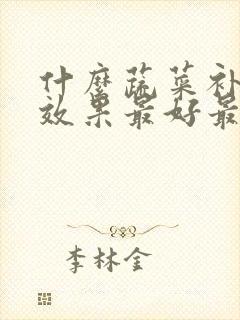 什麽蔬菜补
效果最好最
李林金